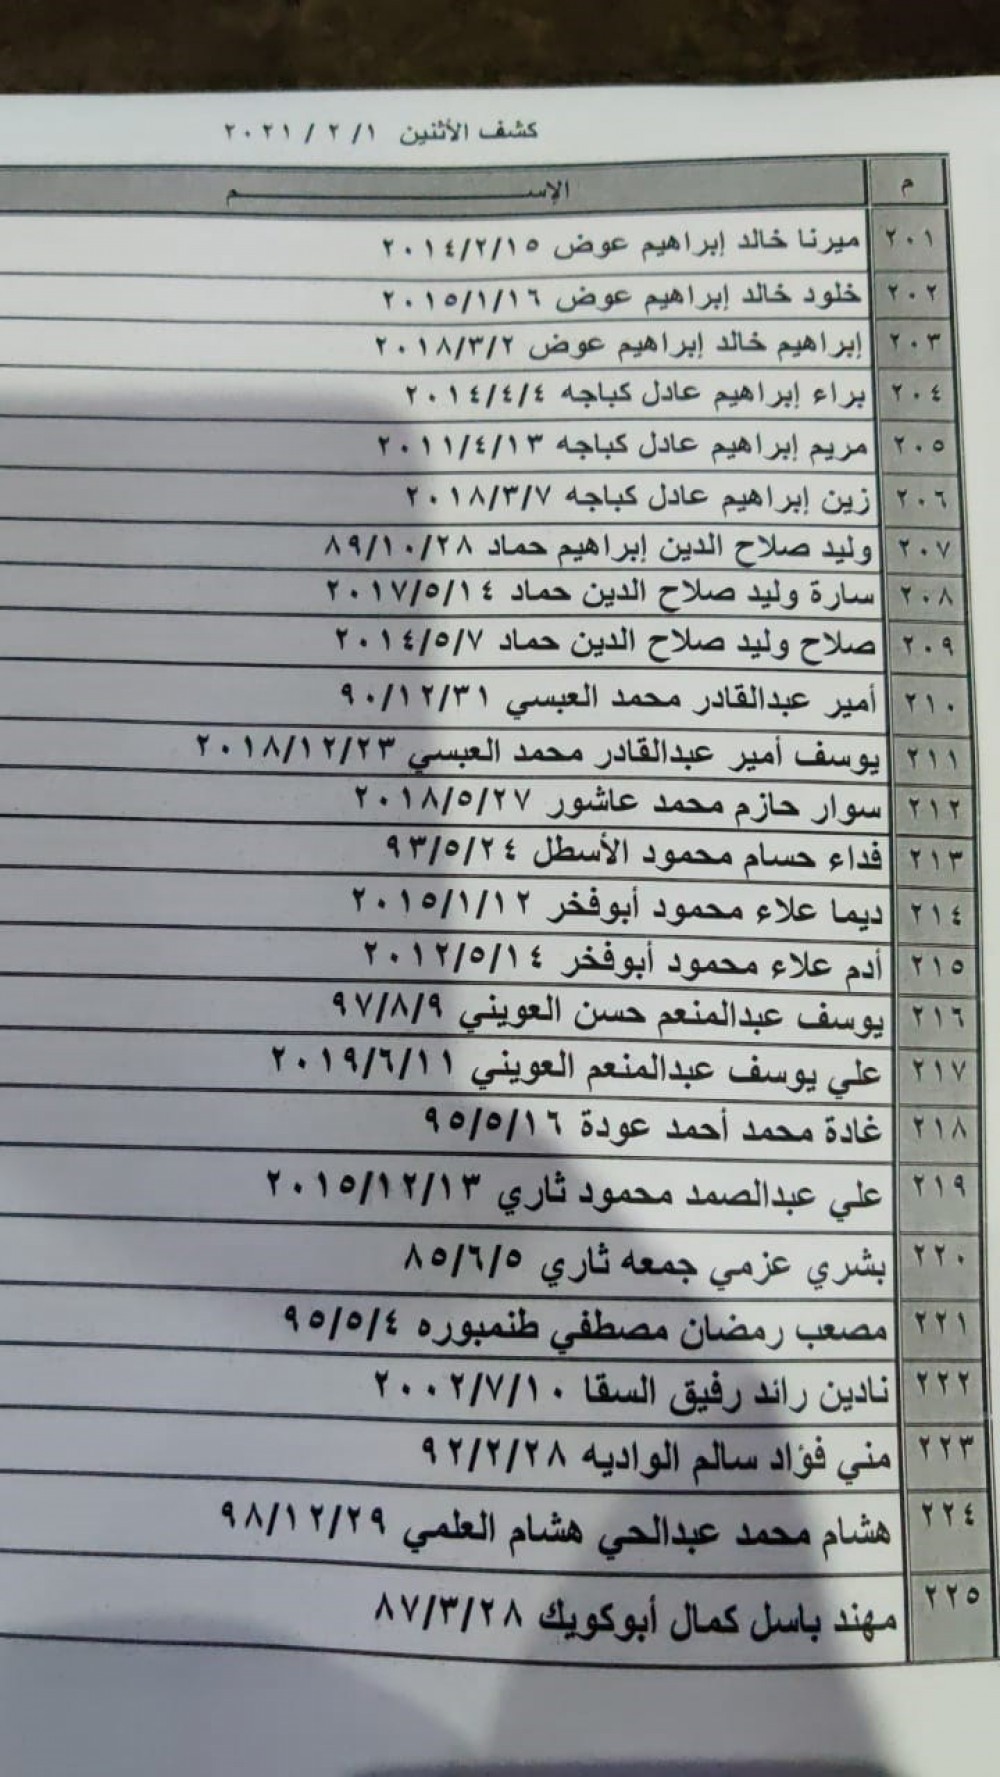 كشف الأثنين ٢٠٢١ / ٢ / ١
م الإســـــــــــم
٢٠١ ميرنا خالد إبراهيم عوض ٢٠١٤/٢/١٥
٢٠٢ خلود خالد إبراهيم عوض ٢٠١٥/١/١٦
٢٠٣ إبراهيم خالد إبراهيم عوض ٢٠١٨/٣/٢
٢٠٤ براء إبراهيم عادل كباجه ٢٠١٤/٤/٤
٢٠٥ مريم إبراهيم عادل كباجه ٢٠١١/٤/١٣
٢٠٦ زين إبراهيم عادل كباجه ٢٠١٨/٣/٧
٢٠٧ وليد صلاح الدين إبراهيم حماد ٨٩/١٠/٢٨
٢٠٨ سارة وليد صلاح الدين حماد ٢٠١٧/٥/١٤
٢٠٩ صلاح وليد صلاح الدين حماد ٢٠١٤/٥/٧
٢١٠ أمير عبدالقادر محمد العبسي ٩٠/١٢/٣١
٢١١ يوسف أمير عبدالقادر محمد العبسي ٢٠١٨/١٢/٢٣
٢١٢ سوار حازم محمد عاشور ٢٠١٨/٥/٢٧
٢١٣ فداء حسام محمود الأسطل ٩٣/٥/٢٤
٢١٤ ديما علاء محمود أبوفخر ٢٠١٥/١/١٢
٢١٥ أدم علاء محمود أبوفخر ٢٠١٢/٥/١٤
٢١٦ يوسف عبدالمنعم حسن العويني ٩٧/٨/٩
٢١٧ علي يوسف عبدالمنعم العويني ٢٠١٩/٦/١١
٢١٨ غادة محمد أحمد عودة ٩٥/٥/١٦
٢١٩ علي عبدالصمد محمود ثاري ٢٠١٥/١٢/١٣
٢٢٠ بشري عزمي جمعه ثاري ٨٥/٦/٥
٢٢١ مصعب رمضان مصطفي طنمبوره ٩٥/٥/٤
٢٢٢ نادين رائد رفيق السقا ٢٠٠٢/٧/١٠
٢٢٣ مني فؤاد سالم الواديه ٩٢/٢/٢٨
٢٢٤ هشام محمد عبدالحي هشام العلمي ٩٨/١٢/٢٩
٢٢٥ مهند باسل كمال أبوكويك ٨٧/٣/٢٨